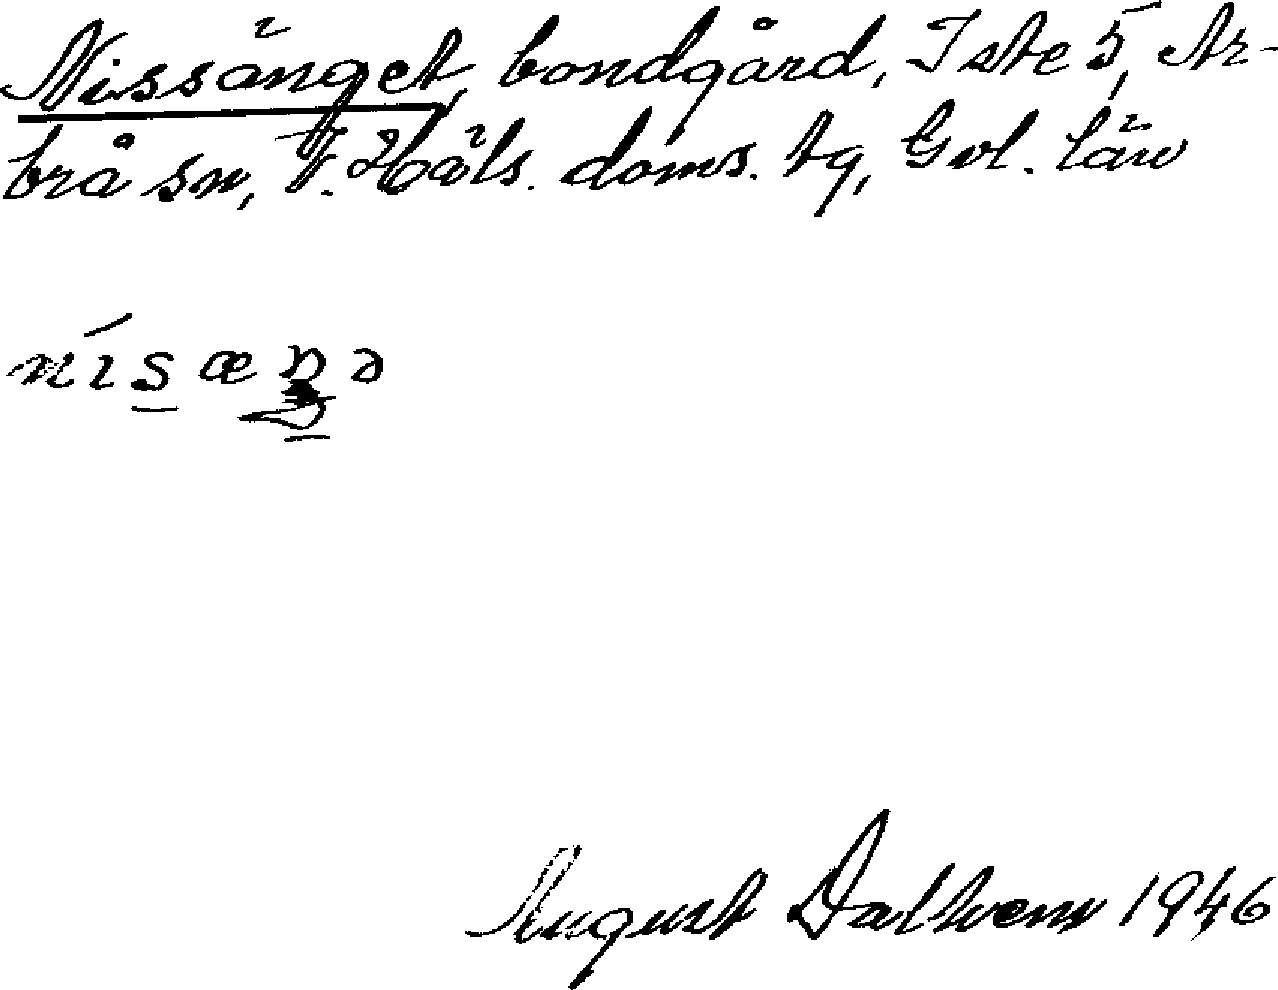 Nissänget, bondgård, Iste 5, Ar-
brå sn, V. Häls. doms. tg, Gvl. län
nísæŋə
August Dalkvem 1946